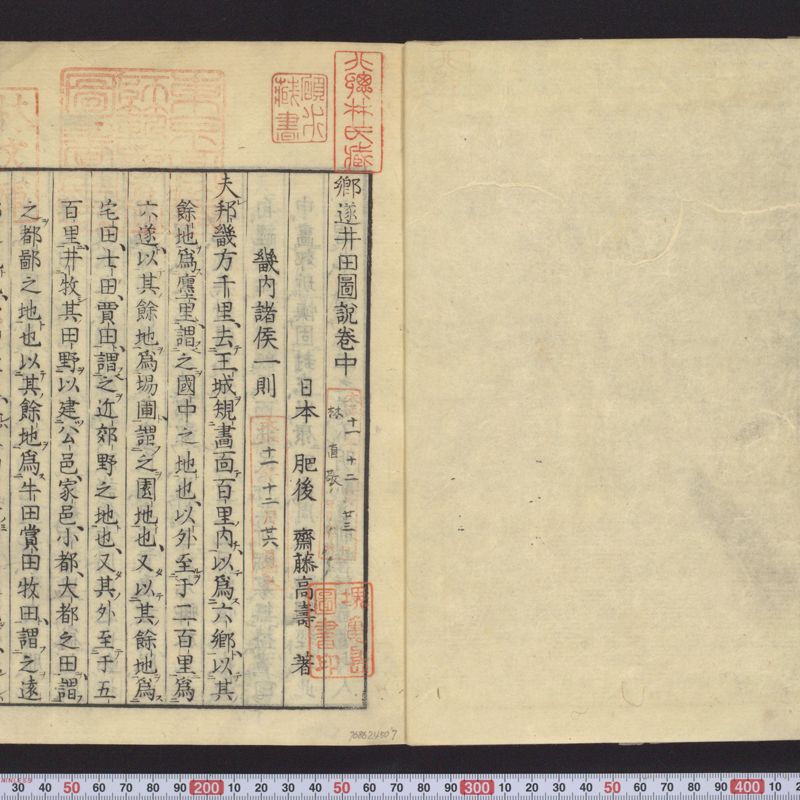 鄉遂井田圖說卷中
日本 肥後 齋藤高壽 著
畿內諸侯一則
夫邦畿方千里、去王城規畫面百里內、以爲六鄉、以其
餘地爲廛里、謂之國中之地也、以外至于二百里爲
六遂、以其餘地爲場圃、謂之園地也、又以其餘地爲
宅田士田、賈田、謂之近郊野之地也、又其外至于五
百里、井牧其田野以建公邑、家邑、小都、大都之田、謂
之都鄙之地也、以其餘地爲牛田賞田牧田、謂之遠
北總林氏藏
碩水藏書
圖書印
十一 十二 廿三
十一 十二 廿六
林 直敬
768624507
30 40 50 60 70 80 90 200 10 20 30 40 50 60 70 80 90 300 10 20 30 40 50 60 70 80 90 400 10